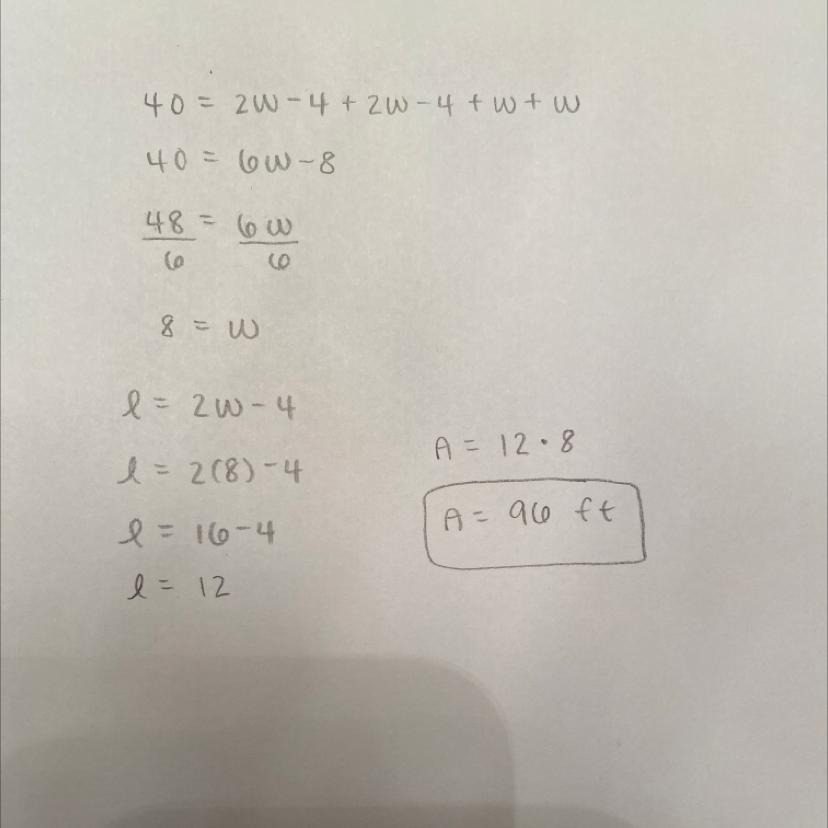 40 = 2w - 4 + 2w - 4 + w + w
40 = 6w - 8
48 = 6w
6 6
8 = w
l = 2w - 4
l = 2(8) - 4
l = 16 - 4
l = 12
A = 12 · 8
A = 96 ft